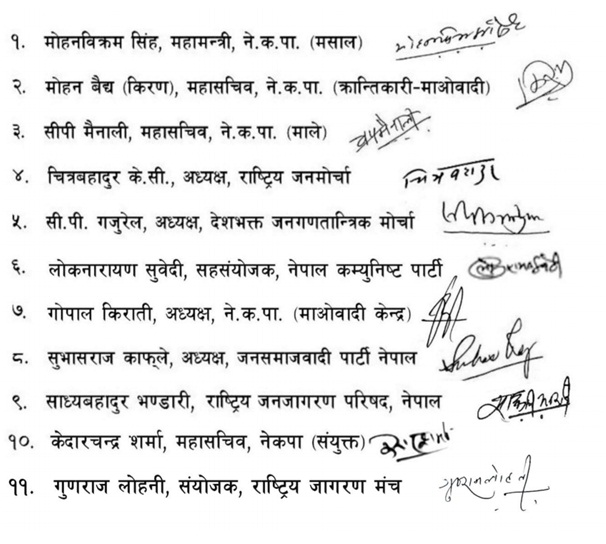 १. मोहनविक्रम सिंह, महामन्त्री, ने.क.पा. (मसाल)
२. मोहन बैद्य (किरण), महासचिव, ने.क.पा. (क्रान्तिकारी-माओवादी)
३. सीपी मैनाली, महासचिव, ने.क.पा. (माले)
४. चित्रबहादुर के.सी., अध्यक्ष, राष्ट्रिय जनमोर्चा
५. सी.पी. गजुरेल, अध्यक्ष, देशभक्त जनगणतान्त्रिक मोर्चा
६. लोकनारायण सुवेदी, सहसंयोजक, नेपाल कम्युनिष्ट पार्टी
७. गोपाल किराती, अध्यक्ष, ने.क.पा. (माओवादी केन्द्र)
८. सुभासराज काफ्ले, अध्यक्ष, जनसमाजवादी पार्टी नेपाल
९. साध्यबहादुर भण्डारी, राष्ट्रिय जनजागरण परिषद, नेपाल
१०. केदारचन्द्र शर्मा, महासचिव, नेकपा (संयुक्त)
११. गुणराज लोहनी, संयोजक, राष्ट्रिय जागरण मंच